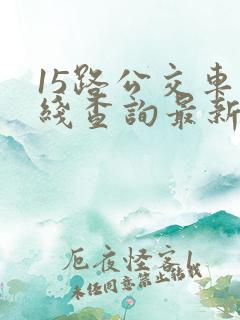 15路公交車
綫查詢最新
厄夜怪客1
未任同意禁止转载